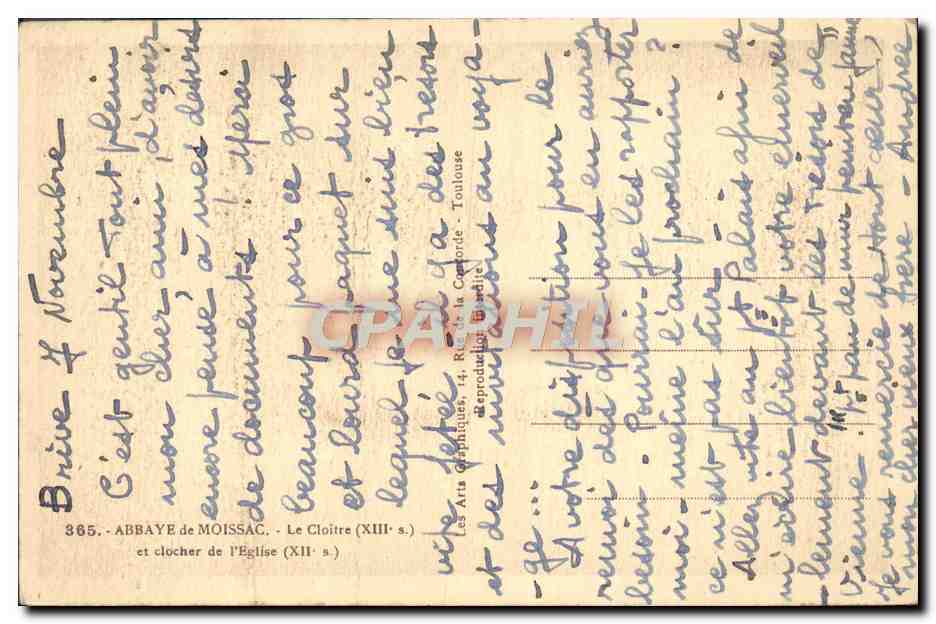 Brive 7 Novembre
C'est gentil tout plein
mon cher ami d'avoir
encore pensé à mes désirs
de documents! Merci
beaucoup pour ce gros
et lourd paquet sur
lequel je me suis bien
vite jetée. Il y a des trésors
et des invitations au voya-
ge...
A votre disposition pour le
renvoi dès que vous en auriez
besoin. Pourrai-je les rapporter
moi-même l'an prochain?
ce n'est pas sûr
Allez vite au Palais afin de
m'écrire bientôt votre émerveil
lement devant les trésors de
Vienne.
Je vous remercie de tout cœur,
mon cher vieux frère - Andrée
365. - ABBAYE de MOISSAC. - Le Cloître (XIIIe s.)
et clocher de l'Eglise (XIIe s.)
Les Arts Graphiques, 14, Rue de la Concorde - Toulouse
Reproduction Interdite
CPAPHIL